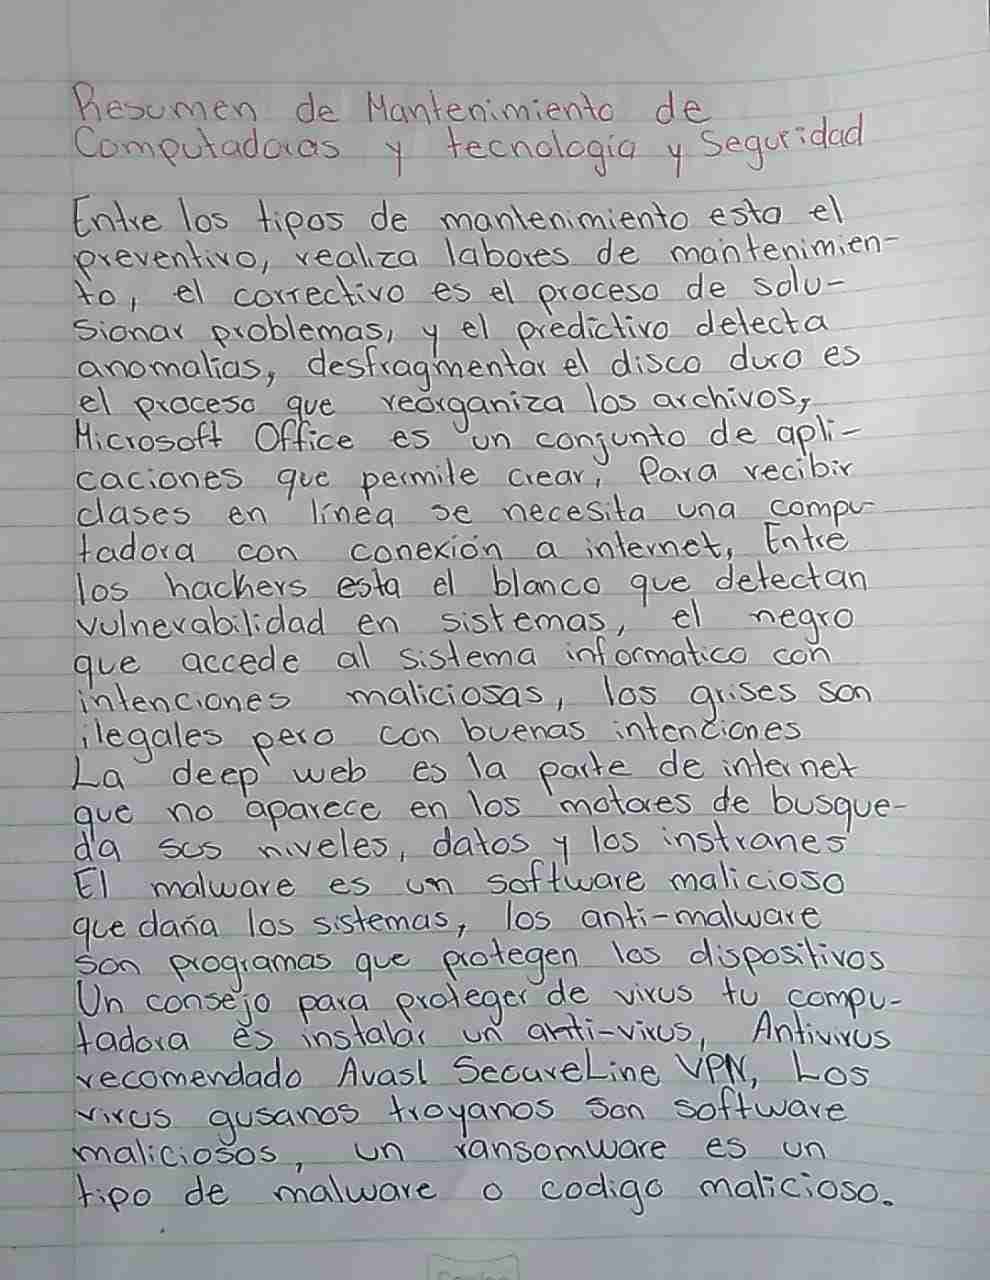 Resumen de Mantenimiento de
Computadoras y tecnología y Seguridad
Entre los tipos de mantenimiento esta el
preventivo, realiza labores de mantenimien-
to, el correctivo es el proceso de solu-
sionar problemas, y el predictivo detecta
anomalías, desfragmentar el disco duro es
el proceso que reorganiza los archivos,
Microsoft Office es un conjunto de apli-
caciones que permite crear, Para recibir
clases en línea se necesita una compu-
tadora con conexión a internet, Entre
los hackers esta el blanco que detectan
vulnerabilidad en sistemas, el negro
que accede al sistema informatico con
intenciones maliciosas, los grises son
ilegales pero con buenas intenciones
La deep web es la parte de internet
que no aparece en los motores de busque-
da sus niveles, datos y los instranes
El malware es un software malicioso
que daña los sistemas, los anti-malware
son programas que protegen los dispositivos
Un consejo para proteger de virus tu compu-
tadora es instalar un anti-virus, Antivirus
recomendado Avast SecureLine VPN, Los
virus gusanos troyanos son software
maliciosos, un ransomware es un
tipo de malware o codigo malicioso.